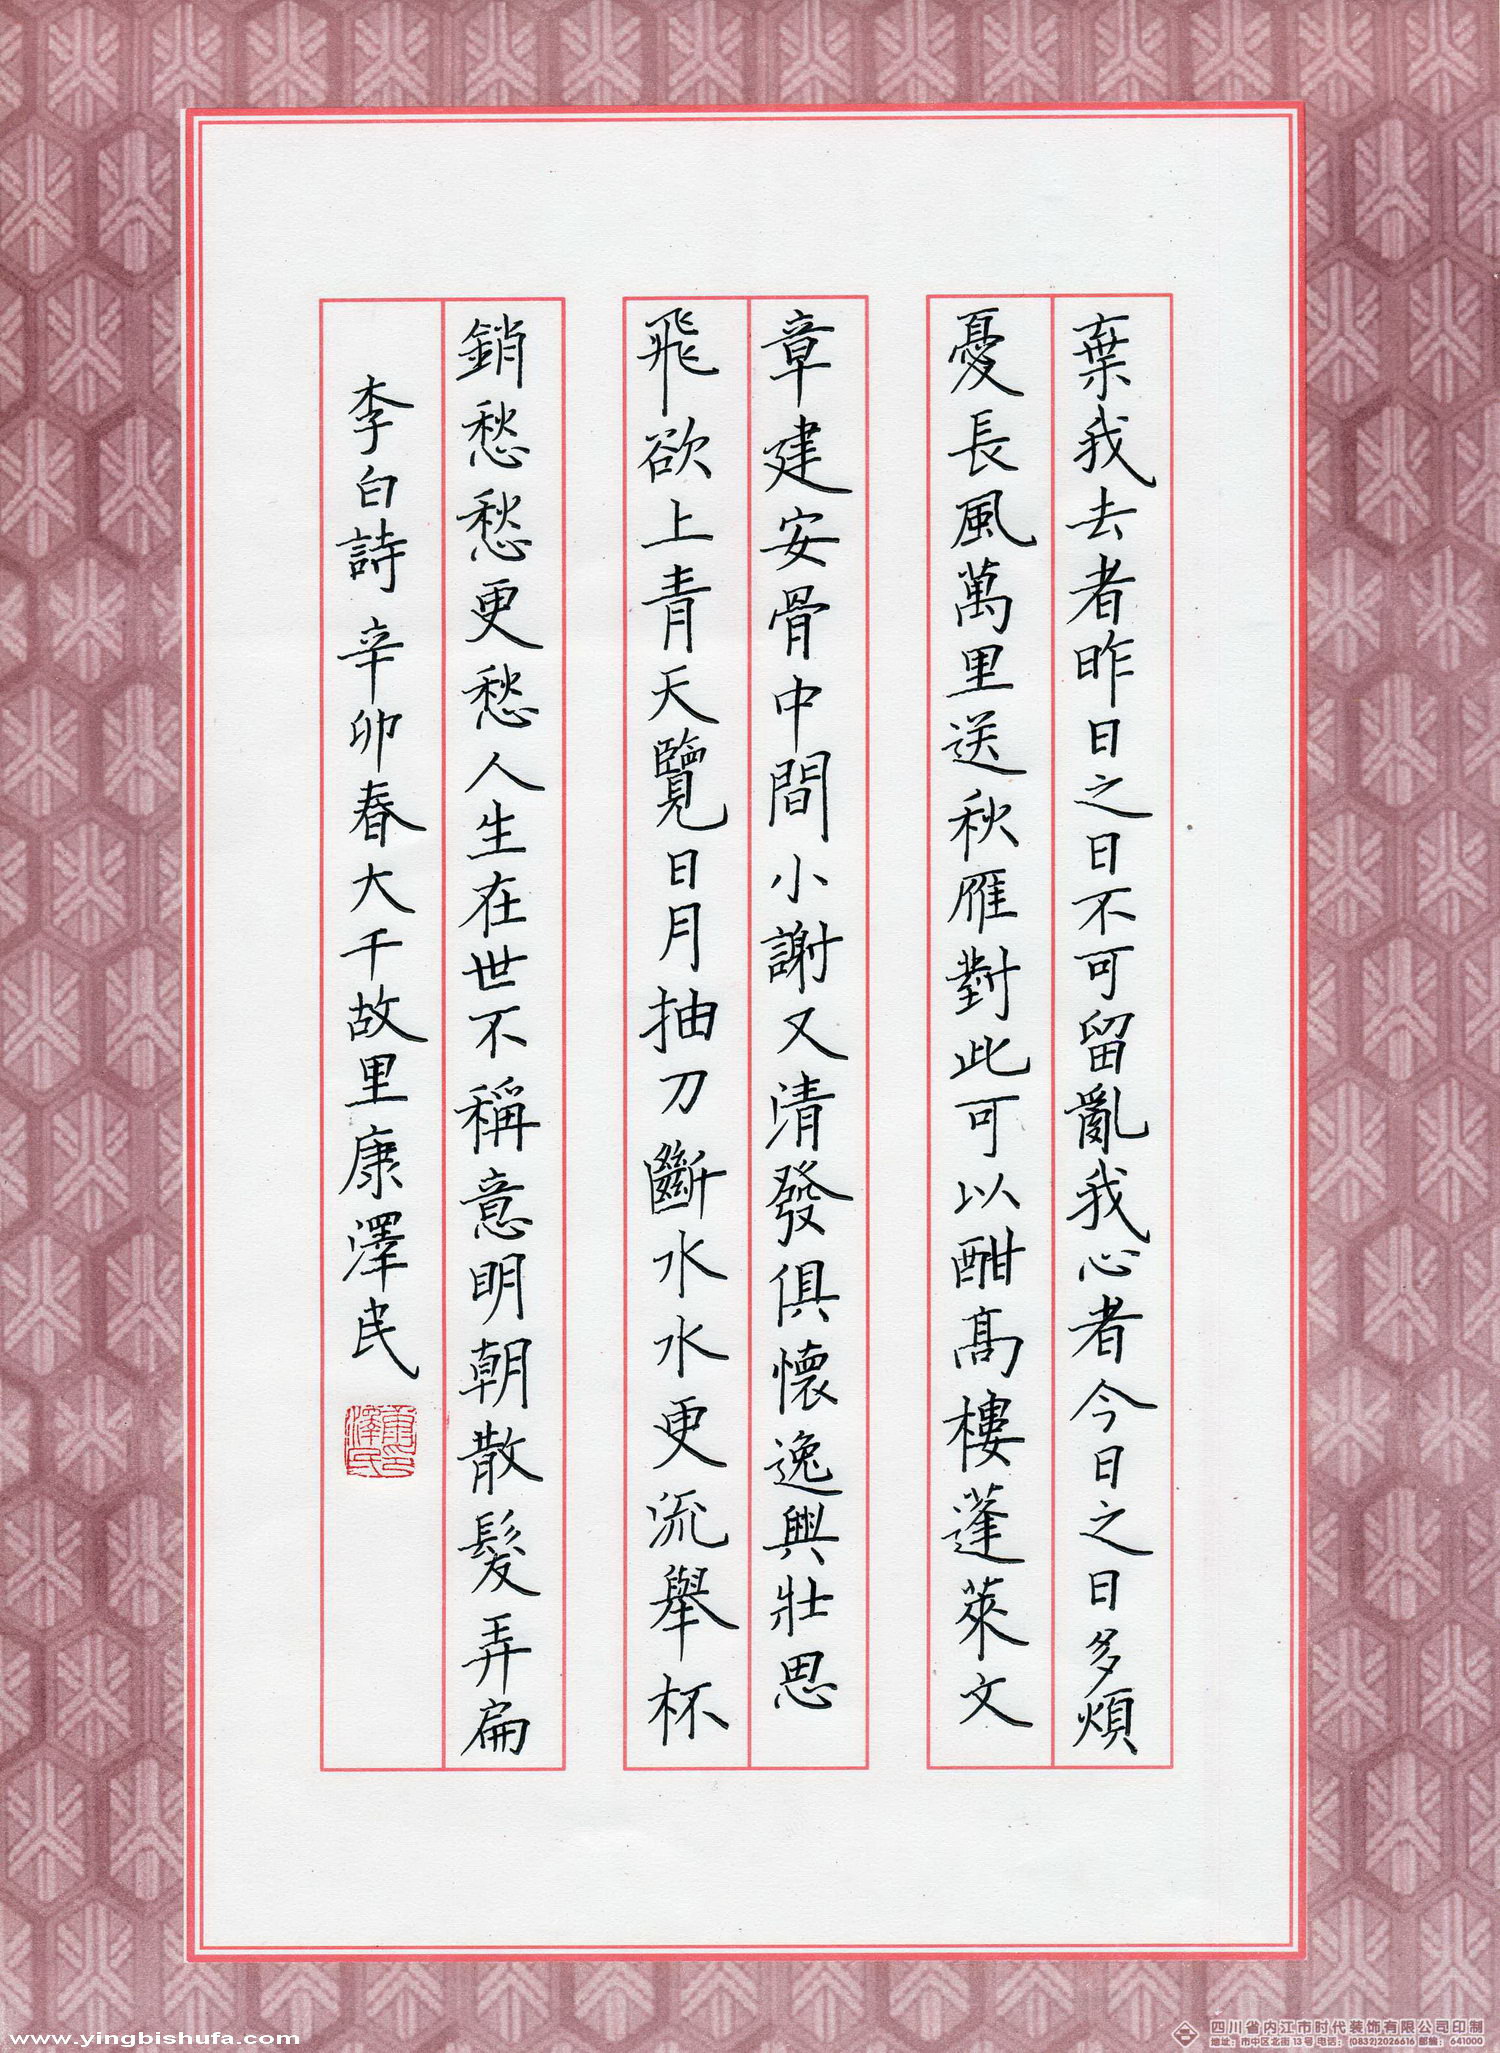 棄我去者昨日之日不可留亂我心者今日之日多煩
憂長風萬里送秋雁對此可以酣髙樓蓬萊文
章建安骨中間小謝又清發俱懷逸興壯思
飛欲上青天覽日月抽刀斷水水更流舉杯
銷愁愁更愁人生在世不稱意明朝散髮弄扁
李白詩 辛卯春大千故里康澤民
康印
澤民
www.yingbishufa.com
四川省内江市时代装饰有限公司印制
地址：市中区北街13号 电话：(0832)2026616 邮编：641000